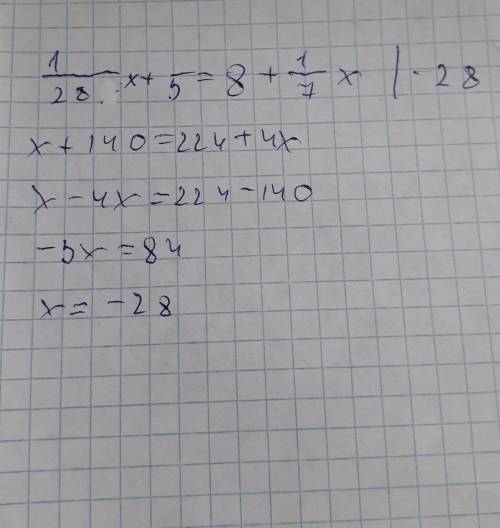 1/28 x + 5 = 8 + 1/7 x | · 28
x + 140 = 224 + 4x
x - 4x = 224 - 140
-3x = 84
x = -28